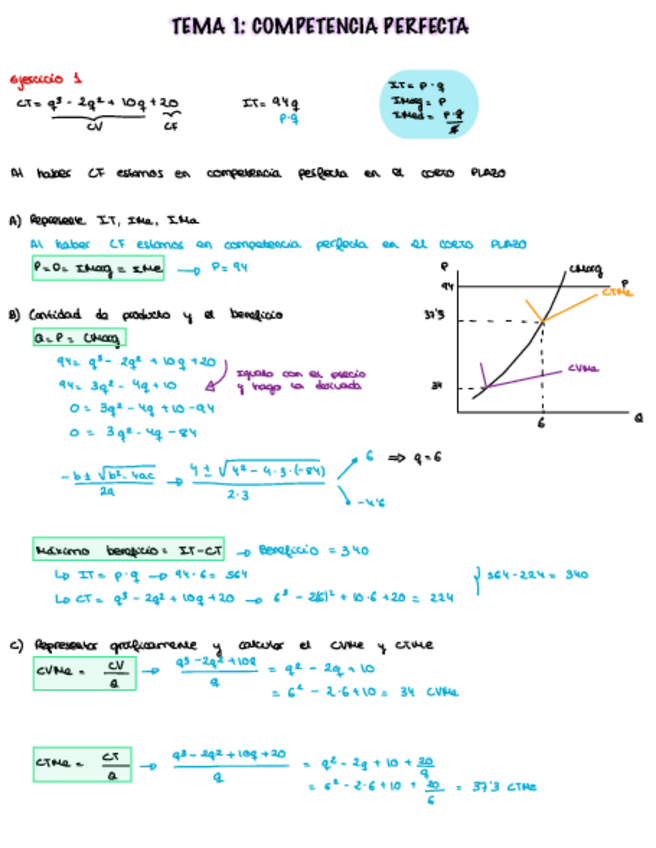 TEMA 1: COMPETENCIA PERFECTA
Ejercicio 1
CT = q³ - 2q² + 10q + 20
CV
CF
IT = 94q
P·q
IT = P·q
IMarg = P
IMed = P·q / q
Al haber CF estamos en competencia perfecta en el CORTO PLAZO
A) Represente IT, IMa, IMa
Al haber CF estamos en competencia perfecta en el CORTO PLAZO
P = O = IMarg = IMe → P = 94
B) Cantidad de producto y el beneficio
O = P = CMarg
94 = q³ - 2q² + 10q + 20
94 = 3q² - 4q + 10
Igualo con el precio
y hago la derivada
0 = 3q² - 4q + 10 - 94
0 = 3q² - 4q - 84
-b ± √b² - 4ac / 2a → 4 ± √4² - 4·3·(-84) / 2·3
6 ⇒ q = 6
-4'6
P
94
37'3
34
6
Q
CMarg
P
CTMe
CVMe
Máximo beneficio = IT - CT → Beneficio = 340
↳ IT = P·q → 94·6 = 564
↳ CT = q³ - 2q² + 10q + 20 → 6³ - 2(6)² + 10·6 + 20 = 224
564 - 224 = 340
C) Representar gráficamente y calcular el CVMe y CTMe
CVMe = CV / Q → q³ - 2q² + 10q / q = q² - 2q + 10
= 6² - 2·6 + 10 = 34 CVMe
CTMe = CT / Q → q³ - 2q² + 10q + 20 / q = q² - 2q + 10 + 20 / q
= 6² - 2·6 + 10 + 20 / 6 = 37'3 CTMe